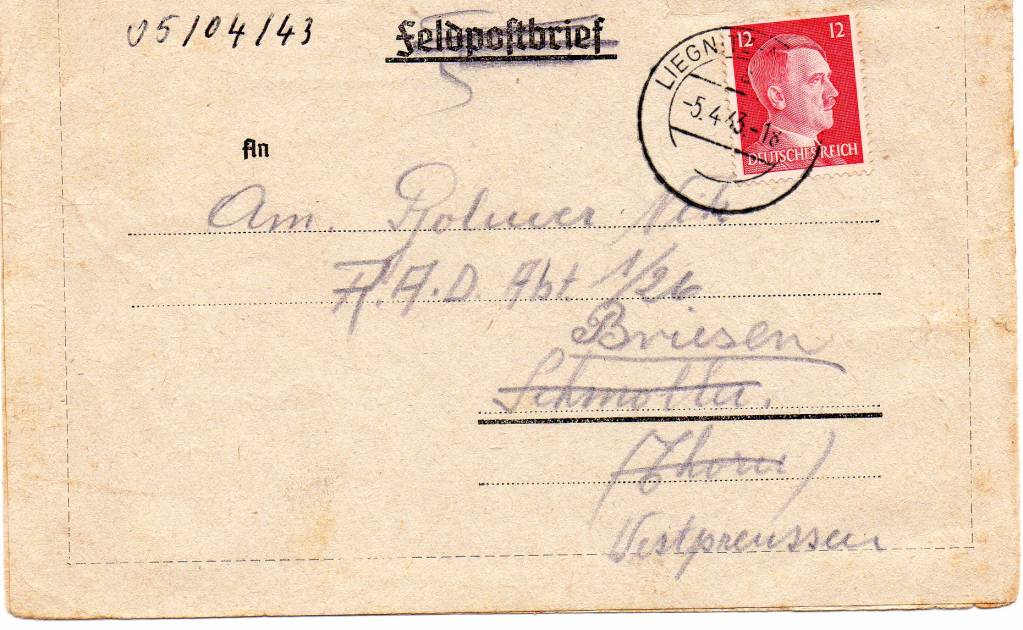 05/04/43
Feldpostbrief
12 12
LIEGNITZ
-5.4.43.-18
DEUTSCHES REICH
An
Am.
R.A.D. Abt. 1/26
Briesen
(Thorn)
Westpreussen